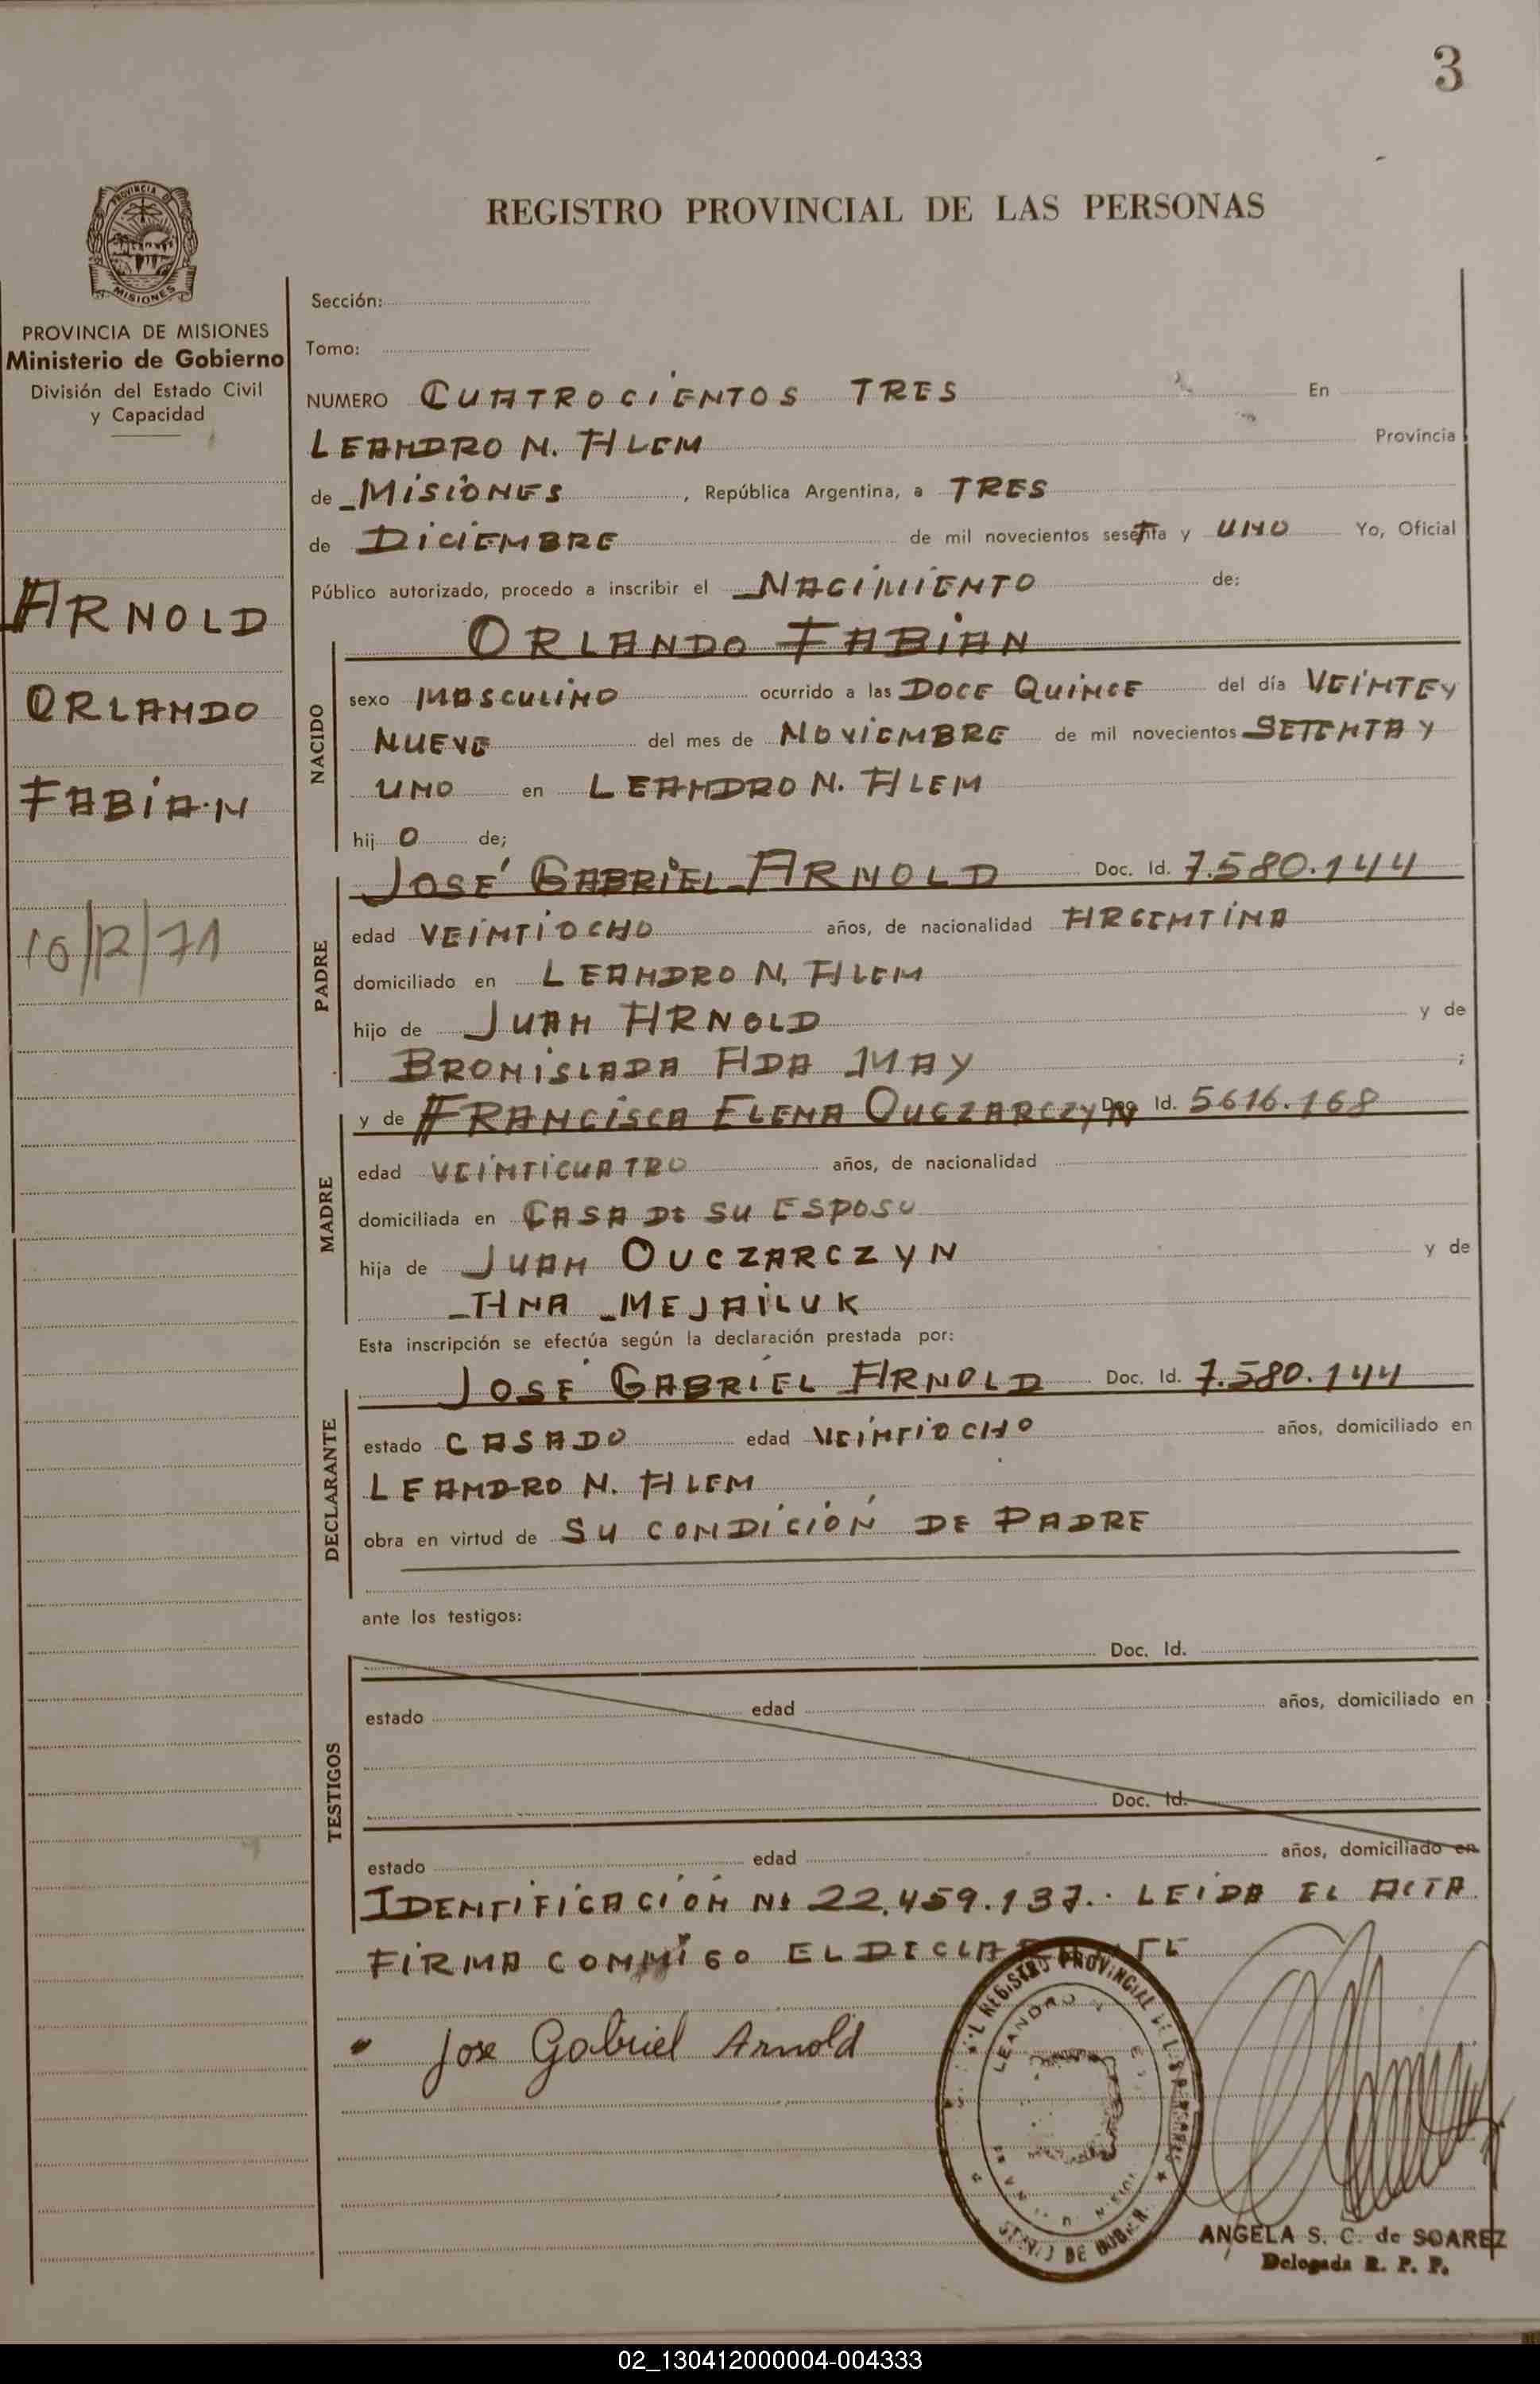 3
PROVINCIA DE
MISIONES
REGISTRO PROVINCIAL DE LAS PERSONAS
PROVINCIA DE MISIONES
Ministerio de Gobierno
División del Estado Civil
y Capacidad
ARNOLD
ORLANDO
FABIAN
Sección:
Tomo:
NUMERO CUATROCIENTOS TRES En
LEANDRO N. ALEM Provincia
de MISIONES, República Argentina, a TRES
de DICIEMBRE de mil novecientos setenta y UNO Yo, Oficial
Público autorizado, procedo a inscribir el NACIMIENTO de:
ORLANDO FABIAN
NACIDO
sexo MASCULINO ocurrido a las DOCE QUINCE del día VEINTEY
NUEVE del mes de NOVIEMBRE de mil novecientos SETENTA Y
UNO en LEANDRO N. ALEM
hij O de;
PADRE
JOSÉ GABRIEL ARNOLD Doc. Id. 7.580.144
edad VEINTIOCHO años, de nacionalidad ARGENTINA
domiciliado en LEANDRO N. ALEM
hijo de JUAN ARNOLD y de
BRONISLADA ADA MAY ;
MADRE
y de FRANCISCA ELENA OUCZARCZYN Doc. Id. 5616.168
edad VEINTICUATRO años, de nacionalidad
domiciliada en CASA DE SU ESPOSO
hija de JUAN OUCZARCZYN y de
ANA MEJAILUK
Esta inscripción se efectúa según la declaración prestada por:
DECLARANTE
JOSÉ GABRIEL ARNOLD Doc. Id. 7.580.144
estado CASADO edad VEINTIOCHO años, domiciliado en
LEANDRO N. ALEM
obra en virtud de SU CONDICIÓN DE PADRE
ante los testigos:
TESTIGOS
Doc. Id.
estado edad años, domiciliado en
Doc. Id.
estado edad años, domiciliado en
IDENTIFICACIÓN Nº 22.459.137.. LEIDA EL ACTA
FIRMA CONMIGO EL DECLARANTE
Jose Gabriel Arnold
REGISTRO PROVINCIAL DE
LEANDRO N
ANGELA S. C. de SOAREZ
Delegada R. P. P.
02_130412000004-004333